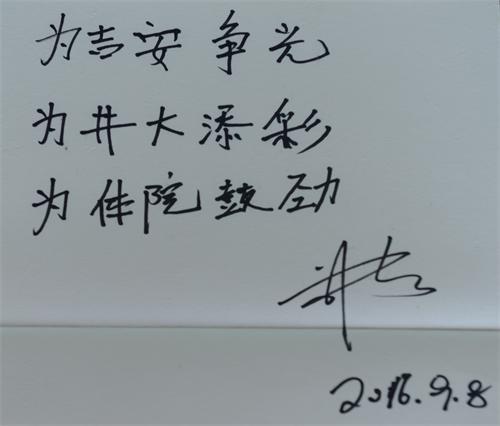 为吉安争光
为井大添彩
为体院鼓劲
2016.9.8